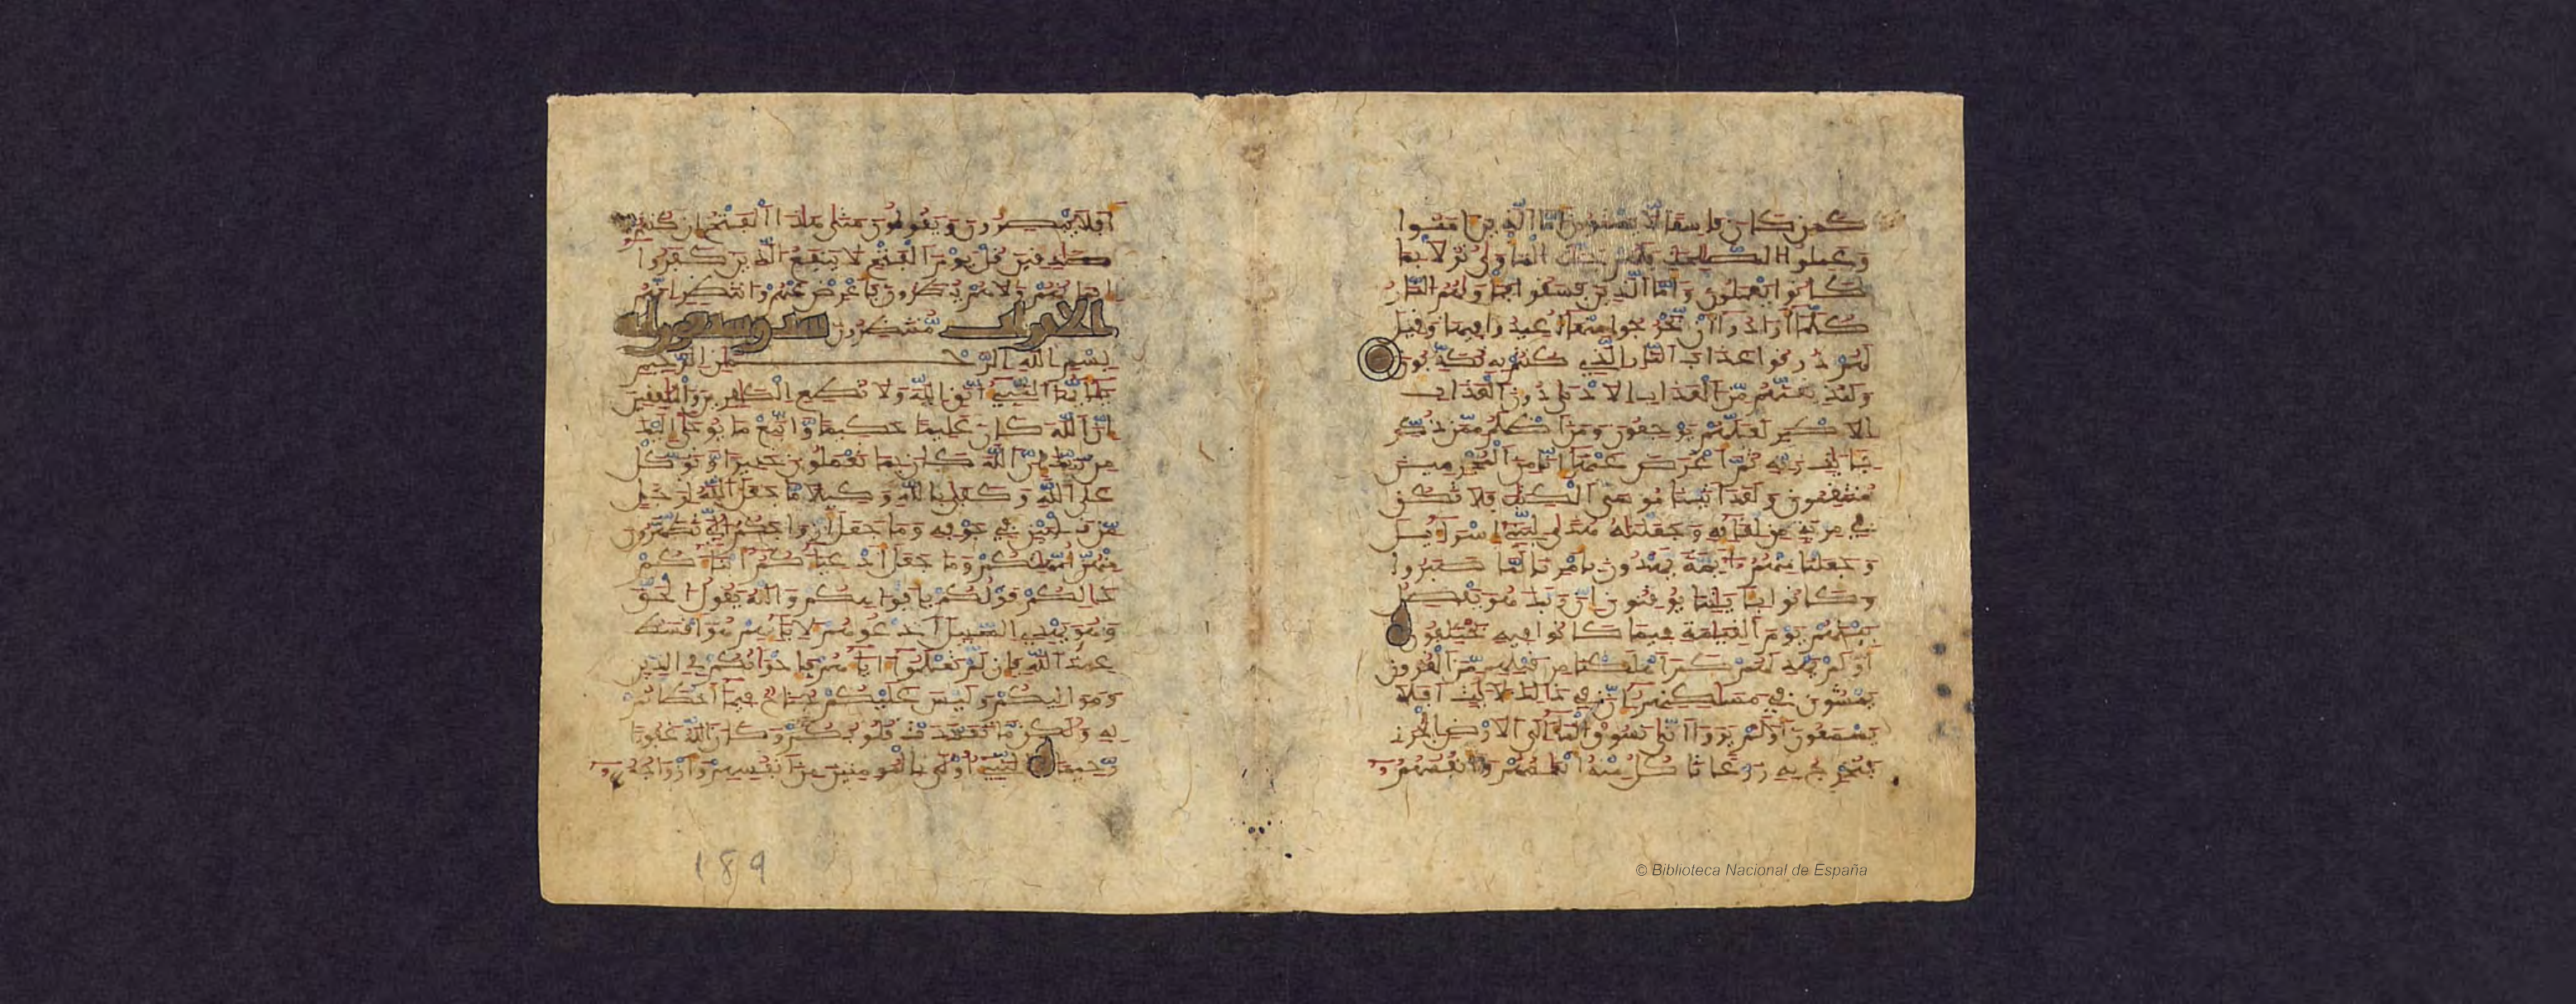 كمن كان فاسقا لا يستون اما الذين امنوا
وعملوا الصلحت فلهم جنت الماوى نزلا بما
كانوا يعملون واما الذين فسقوا فماويهم النار
كلما ارادوا ان يخرجوا منها اعيدوا فيها وقيل
لهم ذوقوا عذاب النار الذي كنتم به تكذبون
ولنذيقنهم من العذاب الادنى دون العذاب
الاكبر لعلهم يرجعون ومن اظلم ممن ذكر
بايت ربه ثم اعرض عنها انا من المجرمين
منتقمون ولقد اتينا موسى الكتب فلا تكن
في مرية من لقائه وجعلنه هدى لبني اسرايل
وجعلنا منهم ايمة يهدون بامرنا لما صبروا
وكانوا بايتنا يوقنون ان ربك هو يفصل
بينهم يوم القيامة فيما كانوا فيه يختلفون
اولم يهد لهم كم اهلكنا من قبلهم من القرون
يمشون في مسكنهم ان في ذلك لايت افلا
يسمعون اولم يروا انا نسوق الما الى الارض الجرز
فنخرج به زرعا تاكل منه انعمهم وانفسهم
افلا يبصرون ويقولون متى هذا الفتح ان كنتم
صدقين قل يوم الفتح لا ينفع الذين كفروا
ايمنهم ولا هم ينظرون فاعرض عنهم وانتظر انهم
منتظرون الاحزاب
بسم الله الرحمن الرحيم
يايها النبي اتق الله ولا تطع الكفرين والمنفقين
ان الله كان عليما حكيما واتبع ما يوحى اليك
من ربك ان الله كان بما تعملون خبيرا وتوكل
على الله وكفى بالله وكيلا ما جعل الله لرجل
من قلبين في جوفه وما جعل ازواجكم الي تظهرون
منهن امهتكم وما جعل ادعياكم ابناكم
ذلكم قولكم بافواهكم والله يقول الحق
وهو يهدي السبيل ادعوهم لابايهم هو اقسط
عند الله فان لم تعلموا اباهم فاخوانكم في الدين
ومواليكم وليس عليكم جناح فيما اخطاتم
به ولكن ما تعمدت قلوبكم وكان الله غفورا
رحيما النبي اولى بالمومنين من انفسهم وازواجه
189
© Biblioteca Nacional de España